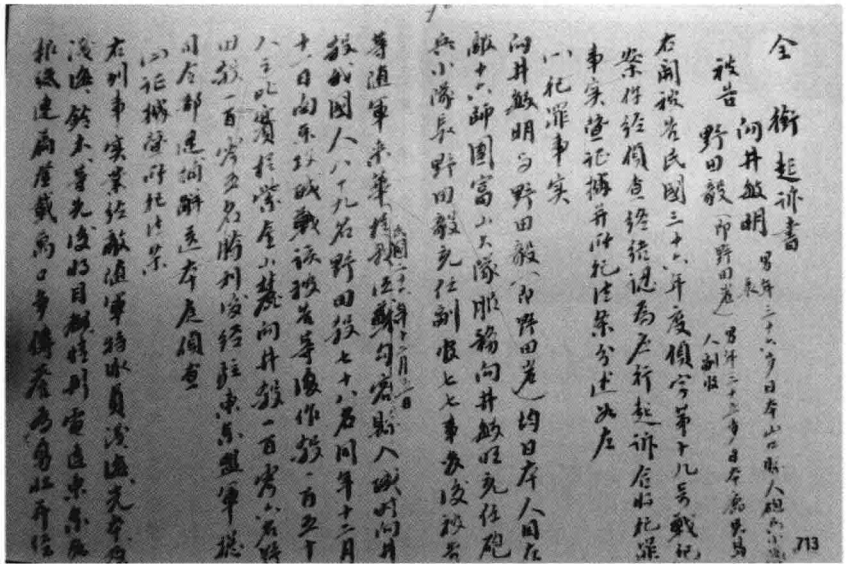 全銜起诉書
向井敏明 男年三十六岁日本山口縣人砲兵小隊長
被告 野田毅(即野田岩)男年三十五岁日本鹿児島人副官
右開被告民國三十六年度偵字第十九号戰犯
案件經偵查終结認為應行起诉合將犯罪
事实暨证據并所犯法条分述如左
(一)犯罪事实
向井敏明与野田毅(即野田岩)均日本人同在
敵十六師團富山大隊服務向井敏明充任砲
兵小隊長野田毅充任副官七七事变後被告
等随軍来華 民國二十六年十二月五日 於我江蘇句容縣入城時向井
殺我國人八十九名野田殺七十八名同年十二月
十一日向南京攻城戰该被告等復作殺一百五十
人之比賽於紫金山麓向井殺一百零六名野
田殺一百零五名勝利後经駐東京盟軍總
司令部逮捕解送本庭偵查
(二)证據暨所犯法条
右列事实業经敵随軍特派員浅海光本
浅海鈴木等先後將目覩情形電達東京
報後連篇登載萬口争傳譽為勇壮并经
713